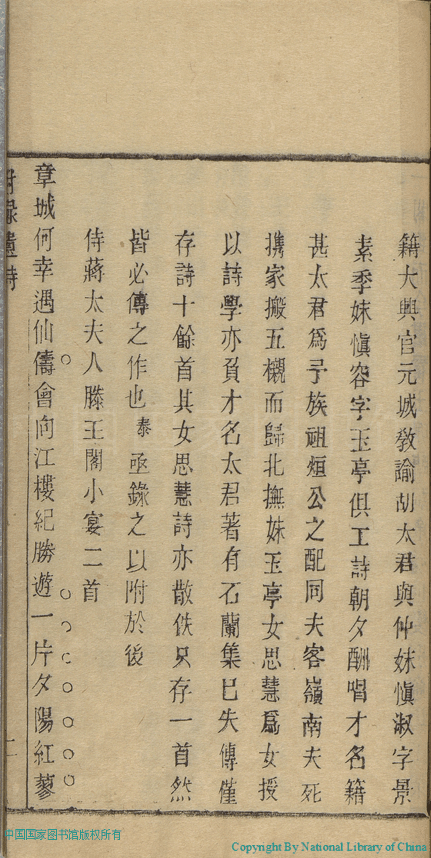 籍大興官元城敎諭胡太君與仲妹愼淑字景
素季妹愼容字玉亭俱工詩朝夕酬唱才名籍
甚太君爲予族祖烜公之配同夫客嶺南夫死
携家搬五櫬而歸北撫妹玉亭女思慧爲女授
以詩學亦負才名太君著有石蘭集已失傳僅
存詩十餘首其女思慧詩亦散佚只存一首然
皆必傳之作也泰亟錄之以附於後
侍蔣太夫人滕王閣小宴二首
章城何幸遇仙儔會向江樓紀勝遊一片夕陽紅蓼
附錄遺詩
一
中国国家图书馆版权所有
Copyright By National Library of China